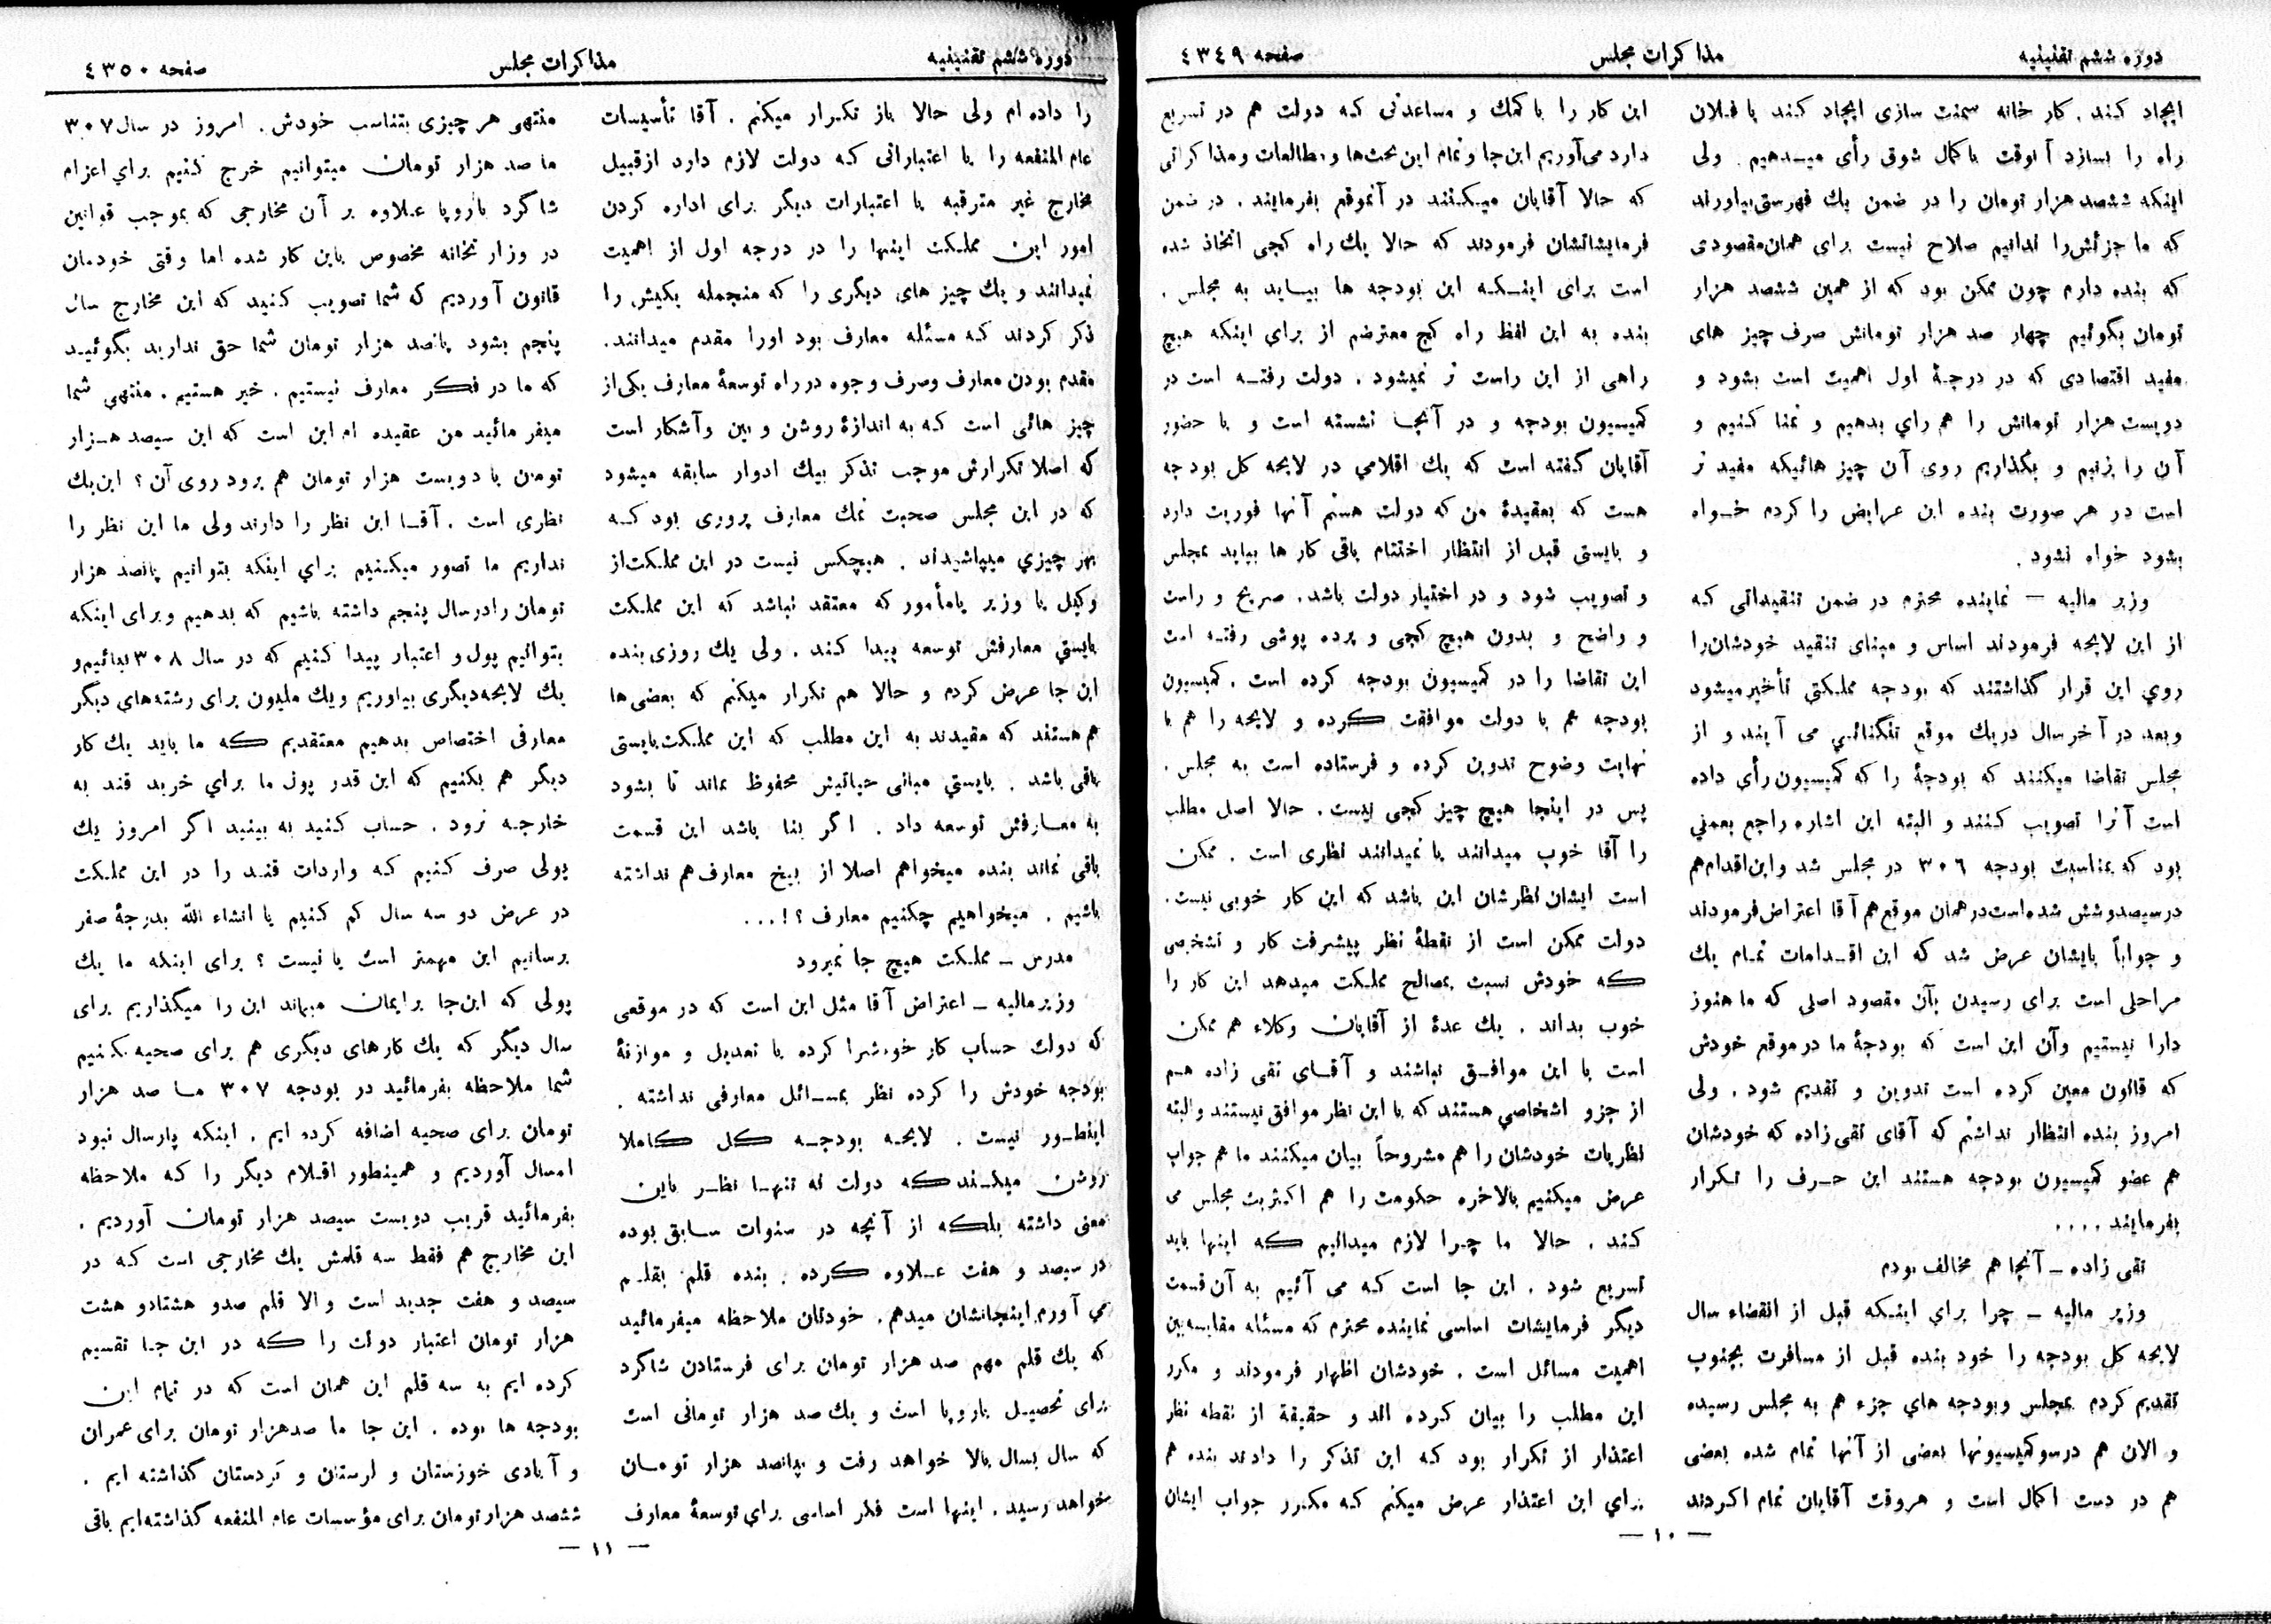 دوره ششم تقنینیه
مذاکرات مجلس
صفحه ٤٣٤٩
ایجاد کند. کار خانه سمنت سازی ایجاد کند یا فلان
راه را بسازد آنوقت باکمال شوق رأی میدهیم. ولی
اینکه ششصد هزار تومان را در ضمن یك فهرستی بیاورند
که ما جزئش را ندانیم صلاح نیست برای همان مقصودی
که بنده دارم چون ممکن بود که از همین ششصد هزار
تومان بگوئیم چهار صد هزار تومانش صرف چیز های
مفید اقتصادی که در درجهٔ اول اهمیت است بشود و
دویست هزار تومانش را هم رأي بدهیم و تمنا کنیم و
آن را بزنیم و بگذاریم روی آن چیز هائیکه مفید تر
است در هر صورت بنده این عرایض را کردم خواه
بشود خواه نشود.
وزیر مالیه — نماینده محترم در ضمن تنقیداتی که
از این لایحه فرمودند اساس و مبنای تنقید خودشان را
روي این قرار گذاشتند که بودجه مملکتی تأخیر میشود
وبعد در آخر سال دریك موقع تنگنائی می آیند و از
مجلس تقاضا میکنند که بودجهٔ را که کمیسیون رأی داده
است آنرا تصویب کنند و البته این اشاره راجع بعملي
بود که بمناسبت بودجه ٣٠٦ در مجلس شد و این اقدام هم
در سیصد و شش شده است در همان موقع هم آقا اعتراض فرمودند
و جواباً بایشان عرض شد که این اقدامات تمام یك
مراحلی است برای رسیدن بآن مقصود اصلی که ما هنوز
دارا نیستیم وآن این است که بودجهٔ ما در موقع خودش
که قانون معین کرده است تدوین و تقدیم شود. ولی
امروز بنده انتظار نداشتم که آقای تقی زاده که خودشان
هم عضو کمیسیون بودجه هستند این حرف را تکرار
بفرمایند ....
تقی زاده ــ آنجا هم مخالف بودم
وزیر مالیه ــ چرا برای اینکه قبل از انقضاء سال
لایحه کل بودجه را خود بنده قبل از مسافرت بجنوب
تقدیم کردم بمجلس وبودجه هاي جزء هم به مجلس رسیده
و الان هم درسوکمیسیونها بعضی از آنها تمام شده بعضی
هم در دست اکمال است و هروقت آقایان تمام کردند
این کار را با کمك و مساعدتی که دولت هم در تسریع
دارد می آوریم این جا و تمام این بحث ها و مطالعات و مذاکراتی
که حالا آقایان میکنند در آنموقع بفرمایند. در ضمن
فرمایشاتشان فرمودند که حالا یك راه کجی اتخاذ شده
است برای اینکه این بودجه ها بیاید به مجلس.
بنده به این لفظ راه کج معترضم از برای اینکه هیچ
راهی از این راست تر نمیشود. دولت رفته است در
کمیسیون بودجه و در آنجا نشسته است و با حضور
آقایان گفته است که یك اقلامي در لایحه کل بودجه
هست که بعقیدهٔ من که دولت هستم آنها فوریت دارد
و بایستی قبل از انتظار اختتام باقی کار ها بیاید بمجلس
و تصویب شود و در اختیار دولت باشد. صریح و راست
و واضح و بدون هیچ کجی و پرده پوشی رفته است
این تقاضا را در کمیسیون بودجه کرده است. کمیسیون
بودجه هم با دولت موافقت کرده و لایحه را هم با
نهایت وضوح تدوین کرده و فرستاده است به مجلس.
پس در اینجا هیچ چیز کجی نیست. حالا اصل مطلب
را آقا خوب میدانند یا نمیدانند نظری است. ممکن
است ایشان نظرشان این باشد که این کار خوبی نیست.
دولت ممکن است از نقطهٔ نظر پیشرفت کار و تشخیصی
که خودش نسبت بمصالح مملکت میدهد این کار را
خوب بداند. یك عدهٔ از آقایان وکلاء هم ممکن
است با این موافق نباشند و آقای تقی زاده هم
از جزو اشخاصي هستند که با این نظر موافق نیستند والبته
نظریات خودشان را هم مشروحاً بیان میکنند ما هم جواب
عرض میکنیم بالاخره حکومت را هم اکثریت مجلس می
کند. حالا ما چرا لازم میدانیم که اینها باید
تسریع شود. این جا است که می آئیم به آن قسمت
دیگر فرمایشات اساسی نماینده محترم که مسئله مقایسه بین
اهمیت مسائل است. خودشان اظهار فرمودند و مکرر
این مطلب را بیان کرده اند و حقیقة از نقطه نظر
اعتذار از تکرار بود که این تذکر را دادند بنده هم
برای این اعتذار عرض میکنم که مکرر جواب ایشان
— ١٠ —
دوره ششم تقنینیه
مذاکرات مجلس
صفحه ٤٣٥٠
را داده ام ولی حالا باز تکرار میکنم. آقا تأسیسات
عام المنفعه را یا اعتباراتی که دولت لازم دارد از قبیل
مخارج غیر مترقبه یا اعتبارات دیگر برای اداره کردن
امور این مملکت اینها را در درجه اول از اهمیت
نمیدانند و یك چیز های دیگری را که منجمله یکیش را
ذکر کردند که مسئله معارف بود اورا مقدم میدانند.
مقدم بودن معارف وصرف وجوه در راه توسعهٔ معارف یکی از
چیز هائی است که به اندازهٔ روشن و بین وآشکار است
که اصلا تکرارش موجب تذکر بیك ادوار سابقه میشود
که در این مجلس صحبت نمك معارف پروری بود که
بهر چیزي میپاشیدند. هیچکس نیست در این مملکت از
وکیل یا وزیر یا مأمور که معتقد نباشد که این مملکت
بایستي معارفش توسعه پیدا کند. ولی یك روزی بنده
این جا عرض کردم و حالا هم تکرار میکنم که بعضی ها
هم هستند که مقیدند به این مطلب که این مملکت بایستی
باقی باشد. بایستي مبانی حیاتیش محفوظ بماند تا بشود
به معارفش توسعه داد. اگر بنا باشد این قسمت
باقی نماند بنده میخواهم اصلا از بیخ معارف هم نداشته
باشیم. میخواهیم چکنیم معارف؟!...
مدرس ــ مملکت هیچ جا نمیرود
وزیر مالیه ــ اعتراض آقا مثل این است که در موقعی
که دولت حساب کار خودشرا کرده یا تعدیل و موازنهٔ
بودجه خودش را کرده نظر بمسائل معارفی نداشته.
اینطور نیست. لایحه بودجه کل کاملا
روشن میکند که دولت نه تنها نظر باین
معنی داشته بلکه از آنچه در سنوات سابق بوده
در سیصد و هفت علاوه کرده. بنده قلم بقلم
می آورم اینجا نشان میدهم. خودتان ملاحظه میفرمائید
که یك قلم مهم صد هزار تومان برای فرستادن شاگرد
برای تحصیل باروپا است و یك صد هزار تومانی است
که سال بسال بالا خواهد رفت و بپانصد هزار تومان
خواهد رسید. اینها است فکر اساسی برای توسعهٔ معارف
منتهی هر چیزی بتناسب خودش. امروز در سال ٣٠٧
ما صد هزار تومان میتوانیم خرج کنیم براي اعزام
شاگرد باروپا علاوه بر آن مخارجی که بموجب قوانین
در وزارتخانه مخصوص باین کار شده اما وقتی خودمان
قانون آوردیم که شما تصویب کنید که این مخارج سال
پنجم بشود پانصد هزار تومان شما حق ندارید بگوئید
که ما در فکر معارف نیستیم. خیر هستیم. منتهی شما
میفرمائید من عقیده ام این است که این سیصد هزار
تومان یا دویست هزار تومان هم برود روی آن؟ این یك
نظری است. آقا این نظر را دارند ولی ما این نظر را
نداریم ما تصور میکنیم برای اینکه بتوانیم پانصد هزار
تومان را درسال پنجم داشته باشیم که بدهیم وبرای اینکه
بتوانیم پول و اعتبار پیدا کنیم که در سال ٣٠٨ بیائیم و
یك لایحه دیگری بیاوریم ویك ملیون برای رشته های دیگر
معارفی اختصاص بدهیم معتقدیم که ما باید یك کار
دیگر هم بکنیم که این قدر پول ما براي خرید قند به
خارجه نرود. حساب کنید به بینید اگر امروز یك
پولی صرف کنیم که واردات قند را در این مملکت
در عرض دو سه سال کم کنیم یا انشاء الله بدرجهٔ صفر
برسانیم این مهمتر است یا نیست؟ برای اینکه ما یك
پولی که این جا برایمان میماند این را میگذاریم برای
سال دیگر که یك کارهای دیگری هم برای صحیه بکنیم
شما ملاحظه بفرمائید در بودجه ٣٠٧ ما صد هزار
تومان برای صحیه اضافه کرده ایم. اینکه پارسال نبود
امسال آوردیم و همینطور اقلام دیگر را که ملاحظه
بفرمائید قریب دویست سیصد هزار تومان آوردیم.
این مخارج هم فقط سه قلمش یك مخارجی است که در
سیصد و هفت جدید است والا قلم صدو هشتادو هشت
هزار تومان اعتبار دولت را که در این جا تقسیم
کرده ایم به سه قلم این همان است که در تمام این
بودجه ها بوده. این جا ما صدهزار تومان برای عمران
و آبادی خوزستان و لرستان و کردستان گذاشته ایم.
ششصد هزار تومان برای مؤسسات عام المنفعه گذاشته ایم باقی
— ١١ —